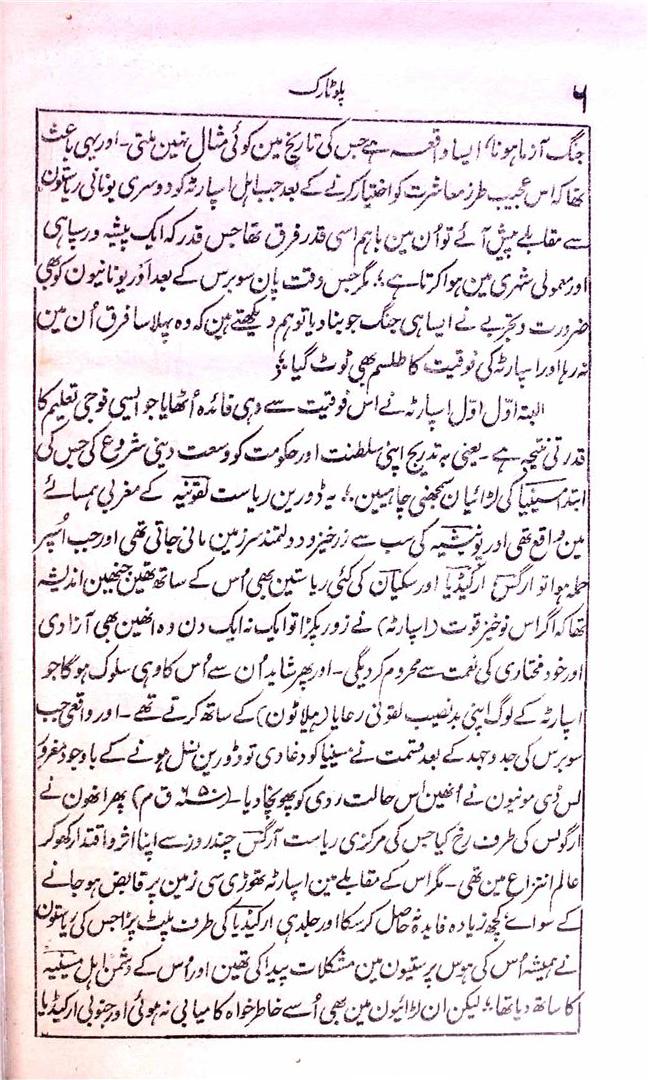 ۶
پلوٹارک
جنگ آزما ہونا ایسا واقعہ ہے جس کی تاریخ مین کوئی مثال نہین ملتی۔ اور یہی باعث
تھا کہ اس عجیب طرز معاشرت کو اختیار کرنے کے بعد جب اہل اسپارٹہ کو دوسری یونانی ریاستون
سے مقابلے پیش آئے تو اُن مین باہم اسی قدر فرق تھا جس قدر کہ ایک پیشہ ور سپاہی
اور معمولی شہری مین ہوا کرتا ہے؛ مگر جس وقت پان سو برس کے بعد اَور یونانیون کو بھی
ضرورت و تجربے نے ایسا ہی جنگ جو بنا دیا تو ہم دیکھتے ہین کہ وہ پہلا سا فرق اُن مین
نہ رہا اور اسپارٹہ کی فوقیت کا طلسم بھی ٹوٹ گیا؛
البتہ اوّل اوّل اسپارٹہ نے اس فوقیت سے وہی فائدہ اُٹھایا جو ایسی فوجی تعلیم کا
قدرتی نتیجہ ہے۔ یعنی بہ تدریج اپنی سلطنت اور حکومت کو وسعت دینی شروع کی جس کی
ابتدا مسینیا کی لڑائیان سمجھنی چاہیین؛ یہ ڈورین ریاست لقونیہ کے مغربی ہمسائے
مین واقع تھی اور کی سب سے زرخیز و دولتمند سرزمین مانی جاتی تھی اور جب اُسپر
حملہ ہوا تو ارگس ارکیڈیا اور سکیان کی کئی ریاستین بھی اُس کے ساتھ تھین جنھین اندیشہ
تھا کہ اگر اس نوخیز قوت (اسپارٹہ) نے زور پکڑا تو ایک نہ ایک دن وہ انھین بھی آزادی
اور خود مختاری کی نعمت سے محروم کر دیگی۔ اور پھر شاید اُن سے اُس کا وہی سلوک ہوگا جو
اسپارٹہ کے لوگ اپنی بد نصیب لقونی رعایا (ہیلاٹون) کے ساتھ کرتے تھے۔ اور واقعی جب
سو برس کی جد و جہد کے بعد قسمت نے مسینیا کو دغا دی تو ڈورین نسل ہونے کے باوجود مغرور
لس ڈی مونیون نے اُنھین اُس حالت ردی کو پہونچا دیا۔ (۶۵۰؁ ق م) پھر انھون نے
ارگولس کی طرف رُخ کیا جس کی مرکزی ریاست آرگس چند روز سے اپنا اثر و اقتدار کھو کر
عالم انتزاع مین تھی۔ مگر اس کے مقابلے مین اسپارٹہ تھوڑی سی زمین پر قابض ہو جانے
کے سواے کچھ زیادہ فایدہ حاصل نہ کر سکا اور جلد ہی ارکیڈیا کی طرف پلٹ پڑا جس کی ریاستون
نے ہمیشہ اُس کی ہوس پرستیون مین مشکلات پیدا کی تھین اور اُس کے دشمن اہل مسینیہ
کا ساتھ دیا تھا؛ لیکن ان لڑائیون مین بھی اُسے خاطر خواہ کامیابی نہ ہوئی اور جنوبی ارکیڈیا